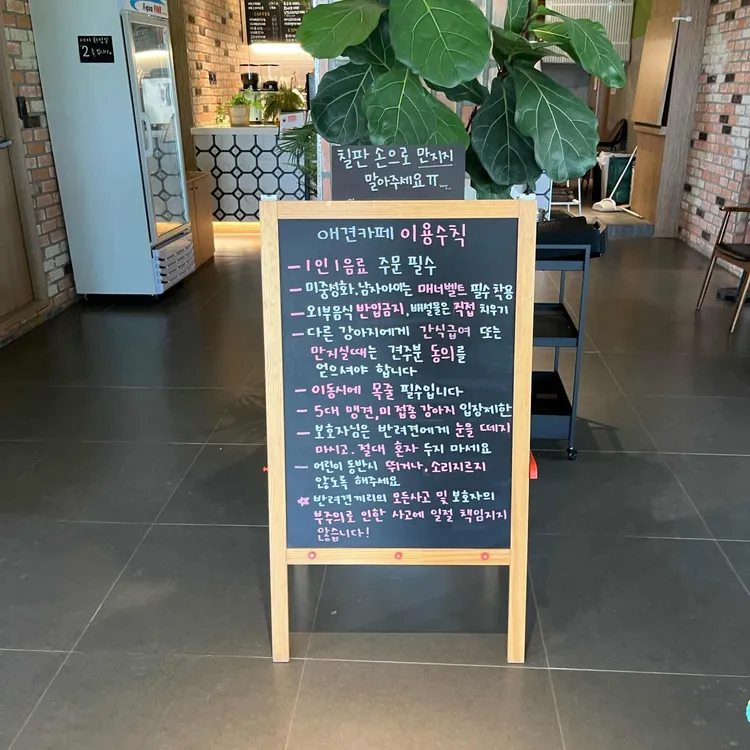 칠판 손으로 만지지
말아주세요ㅠ
애견카페 이용수칙
- 1인 1음료 주문 필수
- 미중성화, 남자아이는 매너벨트 필수착용
- 외부음식 반입금지, 배설물은 직접 치우기
- 다른 강아지에게 간식급여 또는
만지실때는 견주분 동의를
얻으셔야 합니다
- 이동시에 목줄 필수입니다
- 5대 맹견, 미접종강아지 입장제한
- 보호자님은 반려견에게 눈을 떼지
마시고. 절대 혼자 두지 마세요
- 어린이 동반시 뛰거나, 소리지르지
않도록 해주세요
★ 반려견끼리의 모든사고 및 보호자의
부주의로 인한 사고에 일절 책임지지
않습니다!